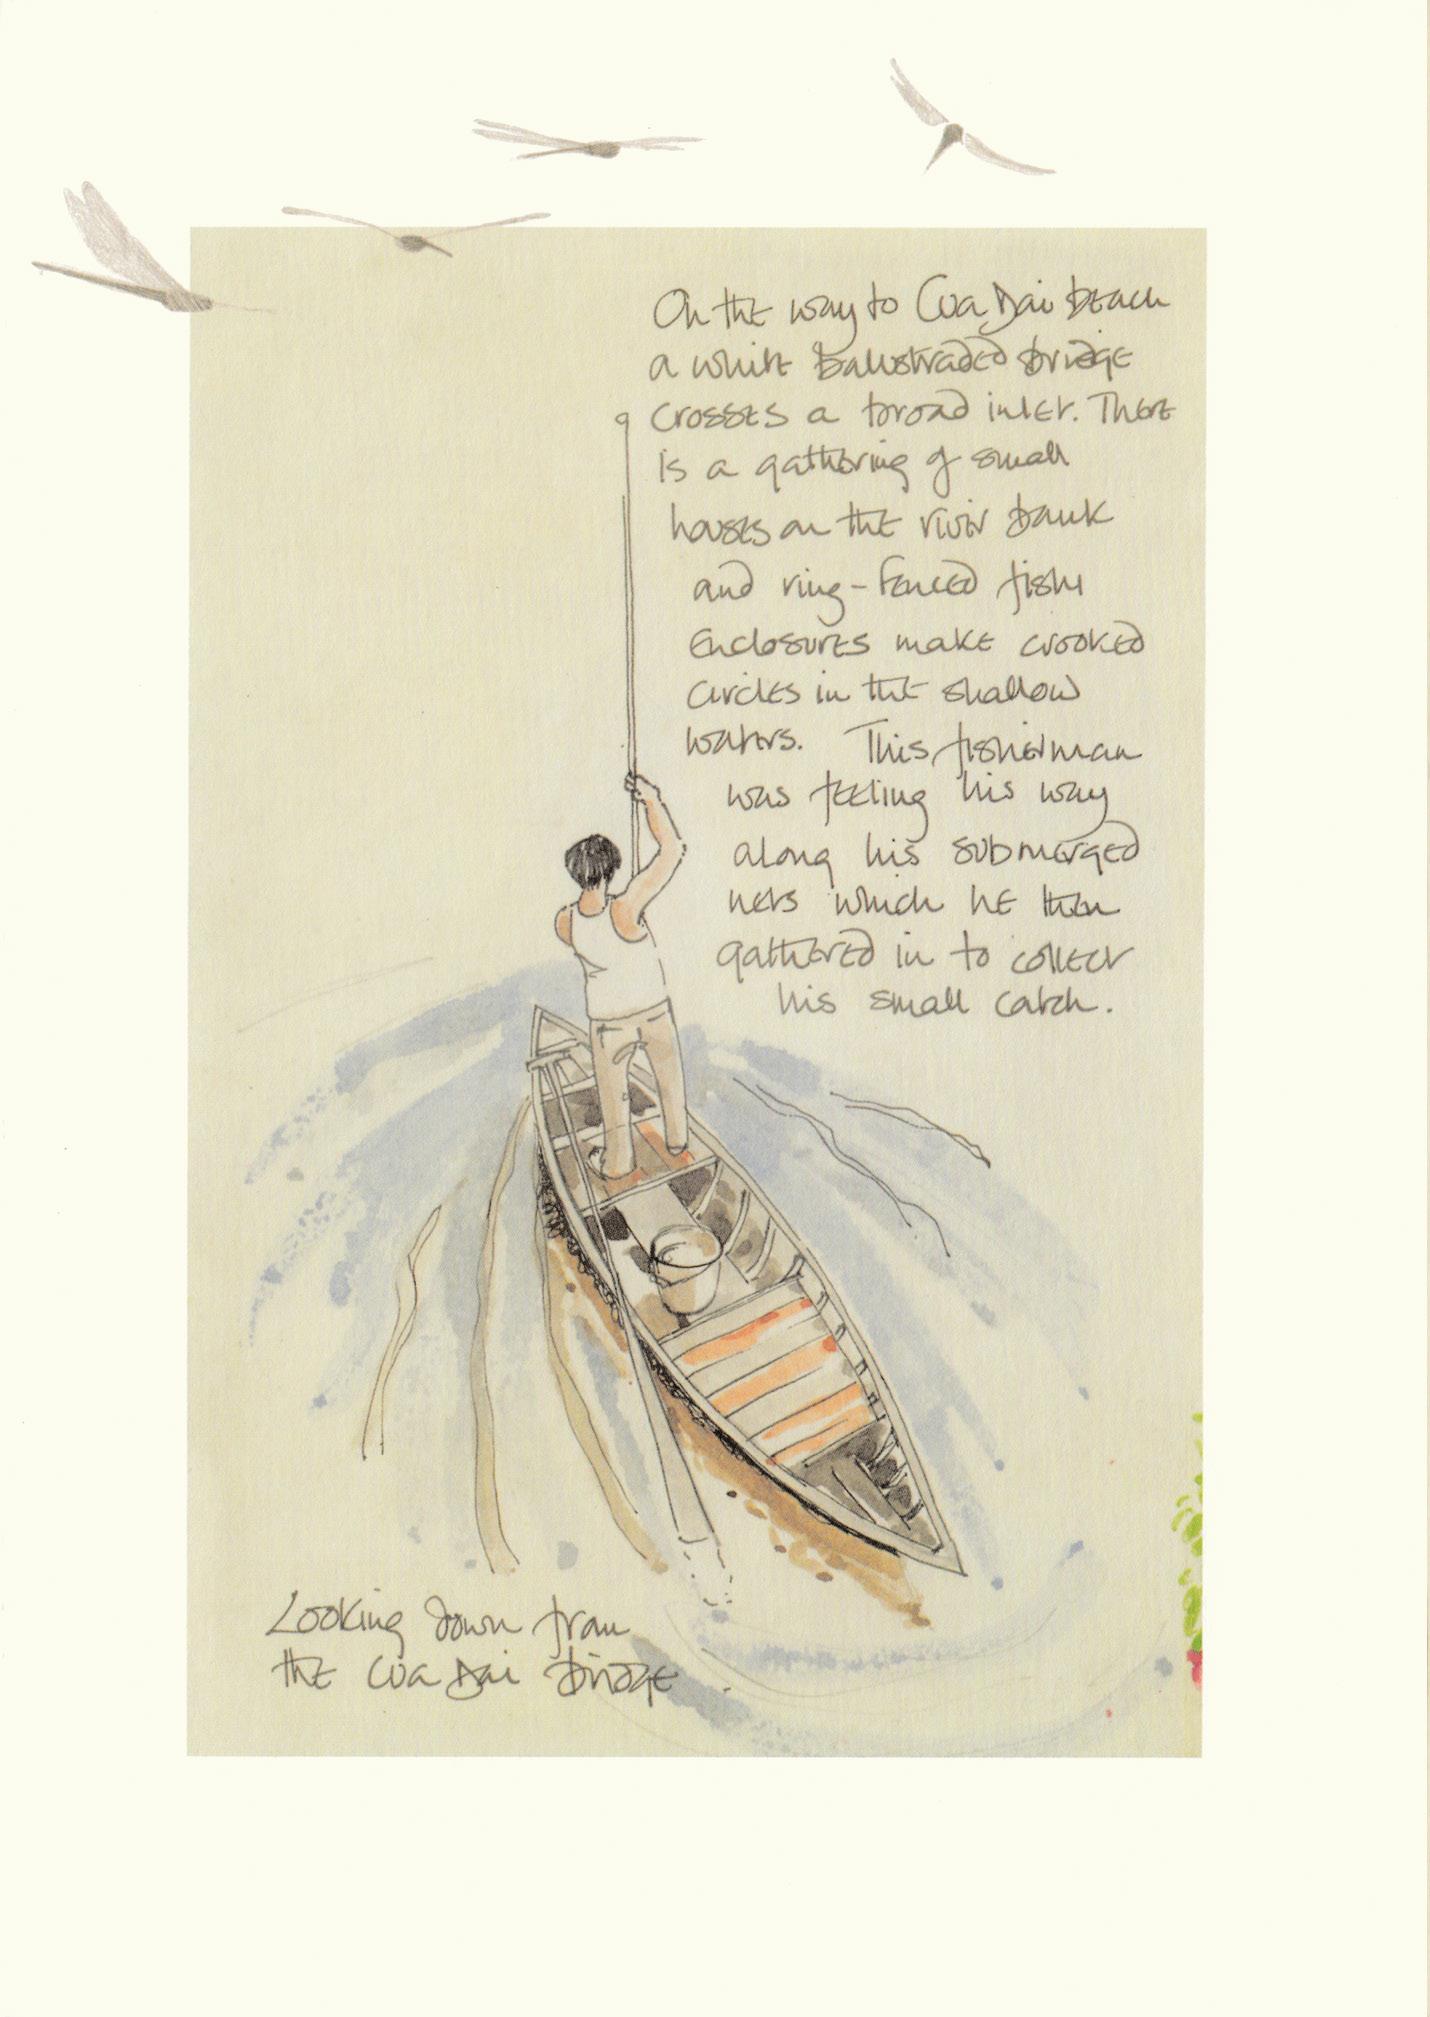 On the way to Cua Dai beach
a white balustraded bridge
crosses a broad inlet. There
is a gathering of small
houses on the river bank
and ring-fenced fish
enclosures make crooked
circles in the shallow
waters. This fisherman
was feeling his way
along his submerged
nets which he then
gathered in to collect
his small catch.
Looking down from
the Cua Dai bridge